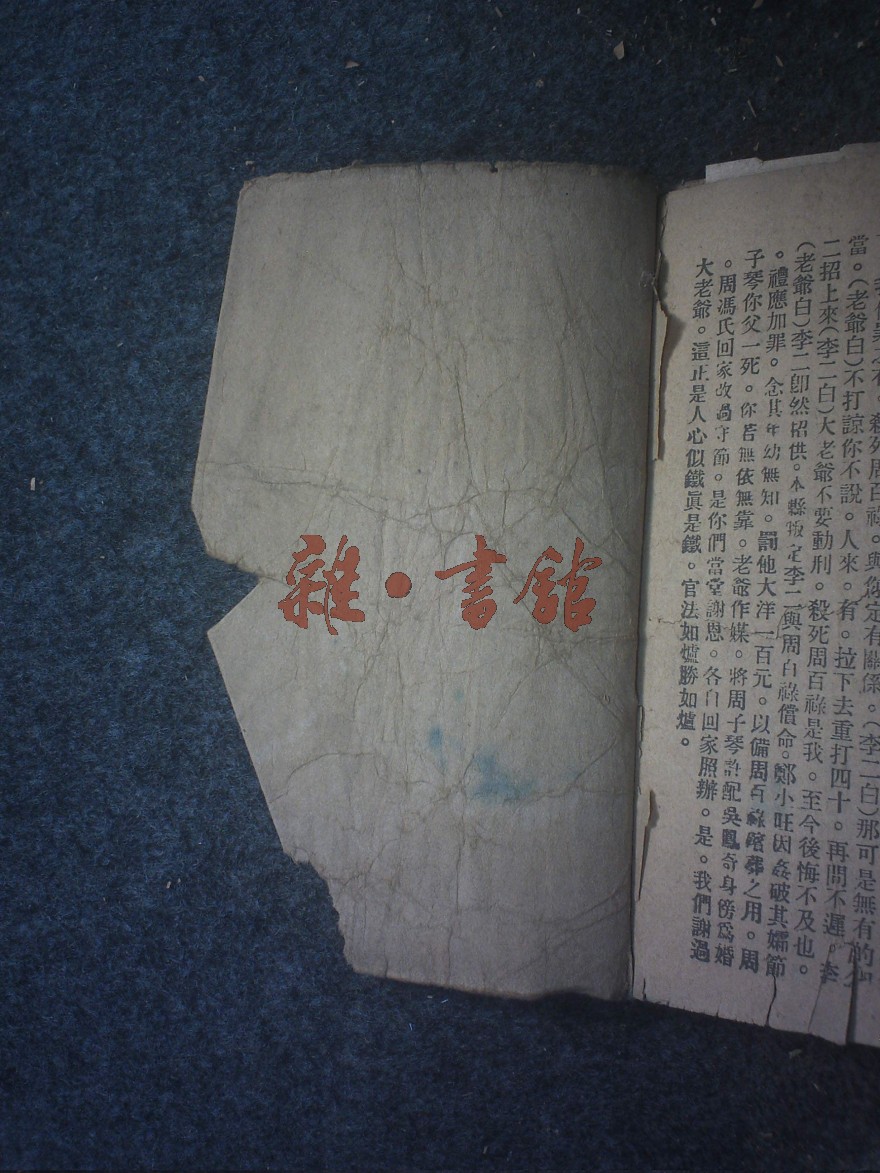 殺死周百祿。與你定有關係。(李二白)那可是無有的
當。(老爺白)不打諒你不說。人來。有。拉下去重打四十。再問不遲。李
二招上來(李二白)大老爺不要動刑。殺死周百祿是我。至今後悔不及也。
(老爺白)李二卽然招供。本縣判定李二與周百祿償命。鄭小旺因姦破其孀節
。禮應加罪。念其年幼無知。罰他大洋一百元。以備周百祿殯葬之用。周
子琴你父一死。你皆無依無靠。老爺作媒。將周子琴許配吳鳳奇身傍爲婚
。周馮氏回家改過守節。是你們當堂謝恩。各自回家照辦。是。我們謝過
大老爺。這正是人心似鐵眞是鐵。官法如爐勝如爐。
雜·書館